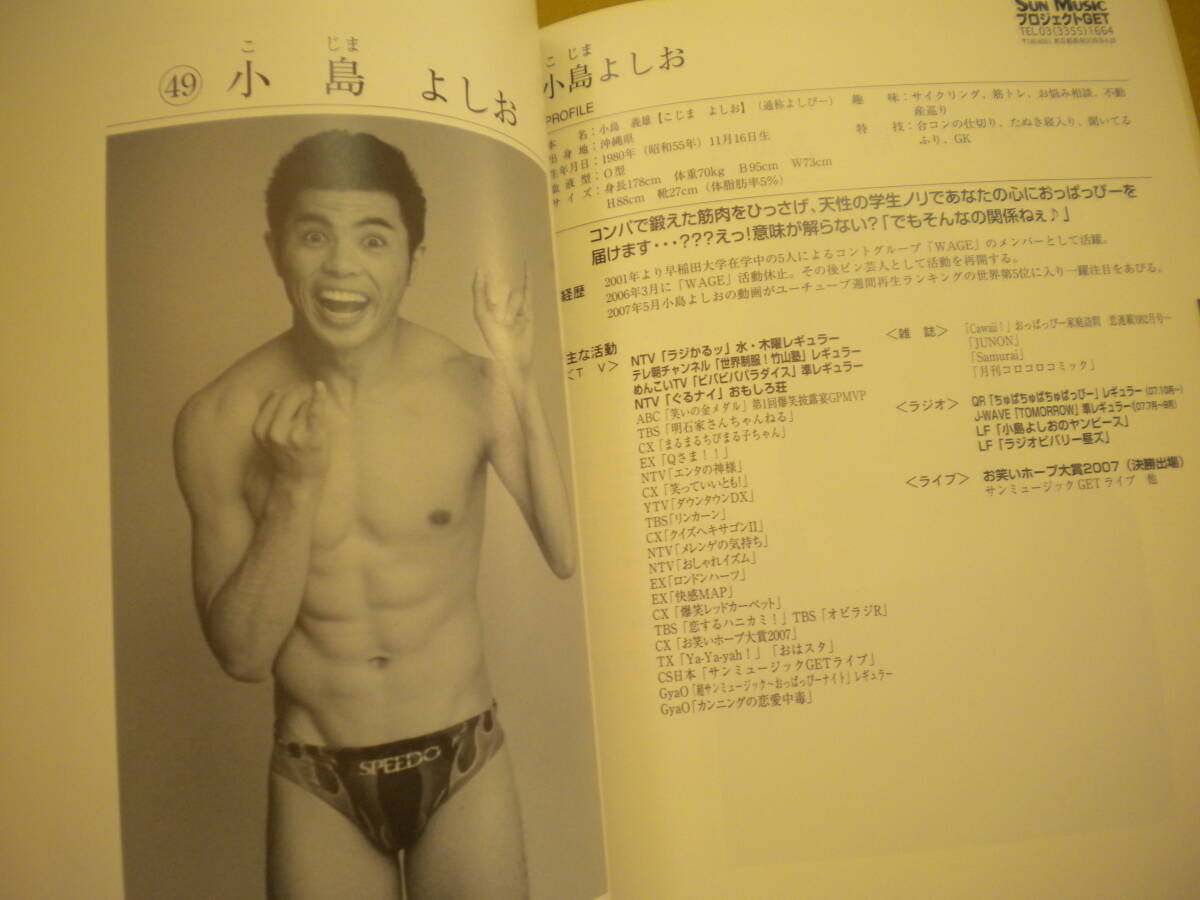 こ じま
㊾ 小 島 よしお
SPEEDO
SUN MUSIC
プロジェクトGET
TEL.03(3355)1664
こ じま
小島よしお
PROFILE
本 名:小島 義雄【こじま よしお】(通称よしぴー)
出 身 地:沖縄県
生年月日:1980年(昭和55年)11月16日生
血 液 型:O型
サ イ ズ:身長178cm 体重70kg B95cm W73cm
H88cm 靴27cm(体脂肪率5%)
趣 味:サイクリング、筋トレ、お悩み相談、不動
産巡り
特 技:合コンの仕切り、たぬき寝入り、聞いてる
ふり、GK
コンパで鍛えた筋肉をひっさげ、天性の学生ノリであなたの心におっぱっぴーを
届けます・・・???えっ!意味が解らない?「でもそんなの関係ねぇ♪」
経歴
2001年より早稲田大学在学中の5人によるコントグループ「WAGE」のメンバーとして活躍。
2006年3月に「WAGE」活動休止。その後ピン芸人として活動を再開する。
2007年5月小島よしおの動画がユーチューブ週間再生ランキングの世界第5位に入り一躍注目をあびる。
主な活動
<T V>
NTV「ラジかるッ」水・木曜レギュラー
テレ朝チャンネル「世界制服!竹山塾」レギュラー
めんこいTV「ビバビバパラダイス」準レギュラー
NTV「ぐるナイ」おもしろ荘
ABC「笑いの金メダル」第1回爆笑披露宴GPMVP
TBS「明石家さんちゃんねる」
CX「まるまるちびまる子ちゃん」
EX「Qさま!!」
NTV「エンタの神様」
CX「笑っていいとも!」
YTV「ダウンタウンDX」
TBS「リンカーン」
CX「クイズヘキサゴンII」
NTV「メレンゲの気持ち」
NTV「おしゃれイズム」
EX「ロンドンハーツ」
EX「快感MAP」
CX「爆笑レッドカーペット」
TBS「恋するハニカミ!」TBS「オビラジR」
CX「お笑いホープ大賞2007」
TX「Ya-Ya-yah!」「おはスタ」
CS日本「サンミュージックGETライブ」
GyaO「超サンミュージック〜おっぱっぴーナイト」レギュラー
GyaO「カンニングの恋愛中毒」
<雑 誌>
「Cawaii!」おっぱっぴー家庭訪問
「JUNON」
「Samurai」
「月刊コロコロコミック」
<ラジオ>
QR「ちゅぱちゅぱちゅぱっぴー」レギュラー('07.10月〜)
J-WAVE「TOMORROW」準レギュラー('07.7月〜9月)
LF「小島よしおのヤンピース」
LF「ラジオビバリー昼ズ」
<ライブ>
お笑いホープ大賞2007(決勝出場)
サンミュージックGETライブ 他